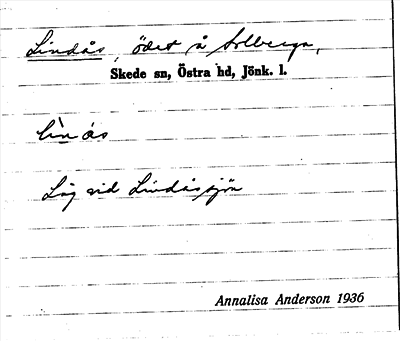 Lindås, ödet å Solberga,
Skede sn, Östra hd, Jönk. l.
lìn ås
Låg vid Lindåssjön
Annalisa Anderson 1936